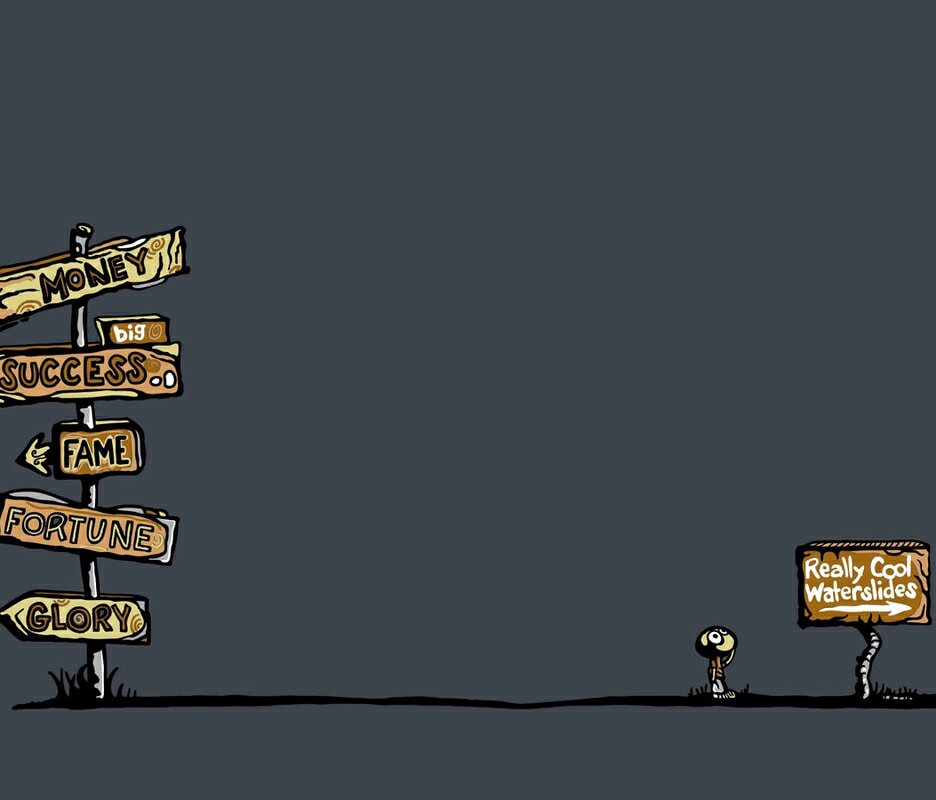 MONEY
big
SUCCESS
FAME
FORTUNE
GLORY
Really Cool
Waterslides